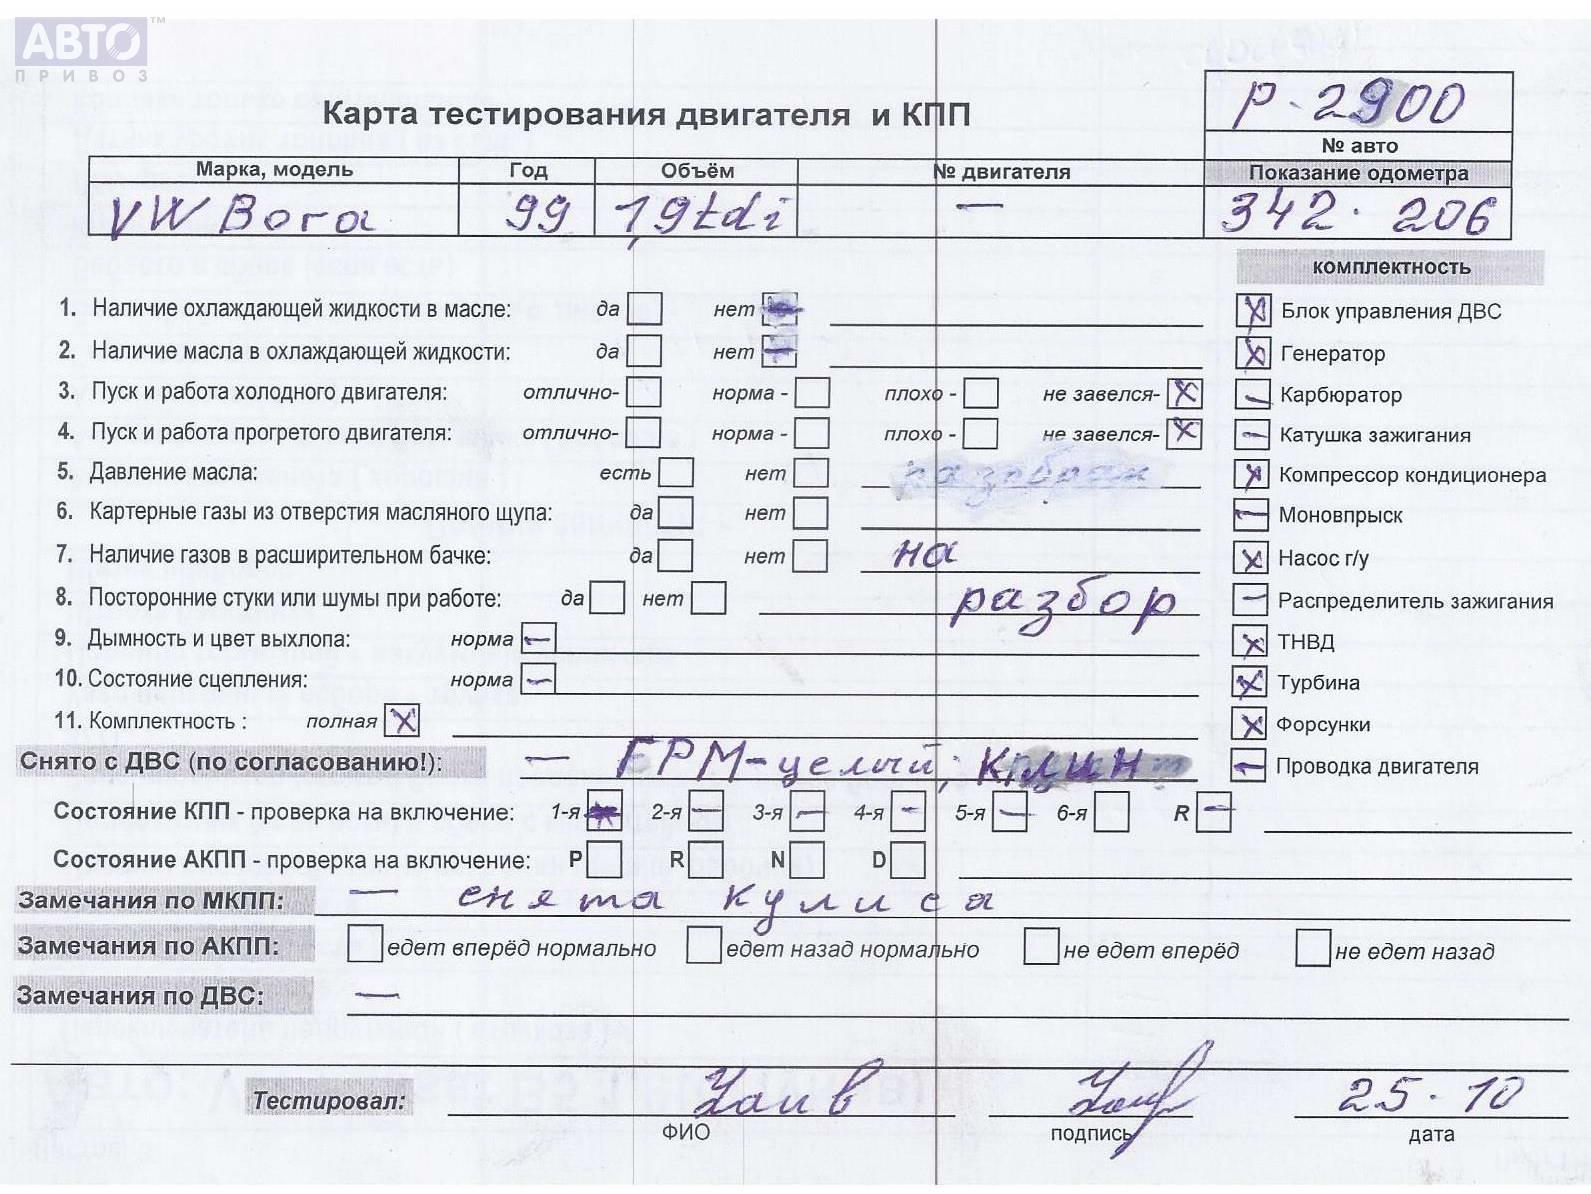 АВТО™
ПРИВОЗ
Карта тестирования двигателя и КПП
Р-2900
№ авто
Марка, модель Год Объём № двигателя Показание одометра
VW Bora 99 1,9tdi — 342.206
комплектность
1. Наличие охлаждающей жидкости в масле: да нет Блок управления ДВС
2. Наличие масла в охлаждающей жидкости: да нет Генератор
3. Пуск и работа холодного двигателя: отлично- норма - плохо - не завелся- Карбюратор
4. Пуск и работа прогретого двигателя: отлично- норма - плохо - не завелся- Катушка зажигания
5. Давление масла: есть нет Компрессор кондиционера
6. Картерные газы из отверстия масляного щупа: да нет Моновпрыск
7. Наличие газов в расширительном бачке: да нет на Насос г/у
8. Посторонние стуки или шумы при работе: да нет разбор Распределитель зажигания
9. Дымность и цвет выхлопа: норма ТНВД
10. Состояние сцепления: норма Турбина
11. Комплектность : полная Форсунки
Снято с ДВС (по согласованию!): — ГРМ-целый; клин Проводка двигателя
Состояние КПП - проверка на включение: 1-я 2-я 3-я 4-я 5-я 6-я R
Состояние АКПП - проверка на включение: P R N D
Замечания по МКПП: — снята кулиса
Замечания по АКПП: едет вперёд нормально едет назад нормально не едет вперёд не едет назад
Замечания по ДВС: —
Тестировал: 25.10
ФИО подпись дата